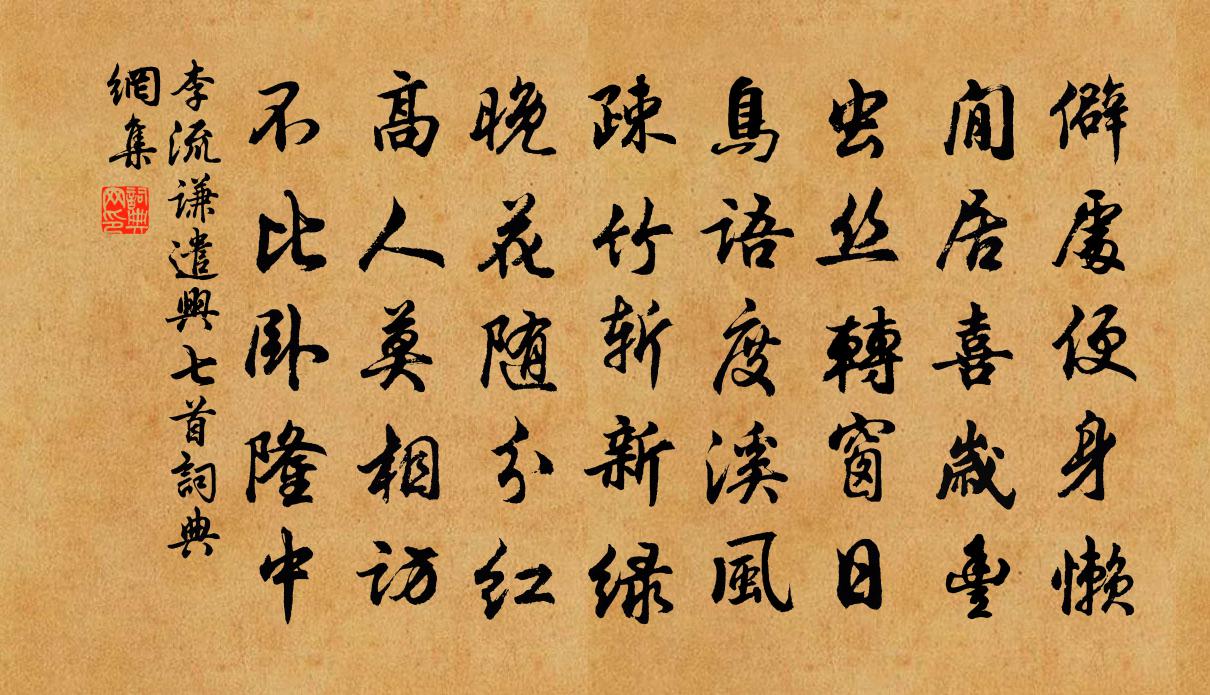 僻處便身懶
閒居喜歲豐
虫丝轉窗日
鳥語度溪風
疎竹斩新緑
晚花随分红
高人莫相訪
不比卧隆中
李流谦遣興七首詞典
網集
詞典網印